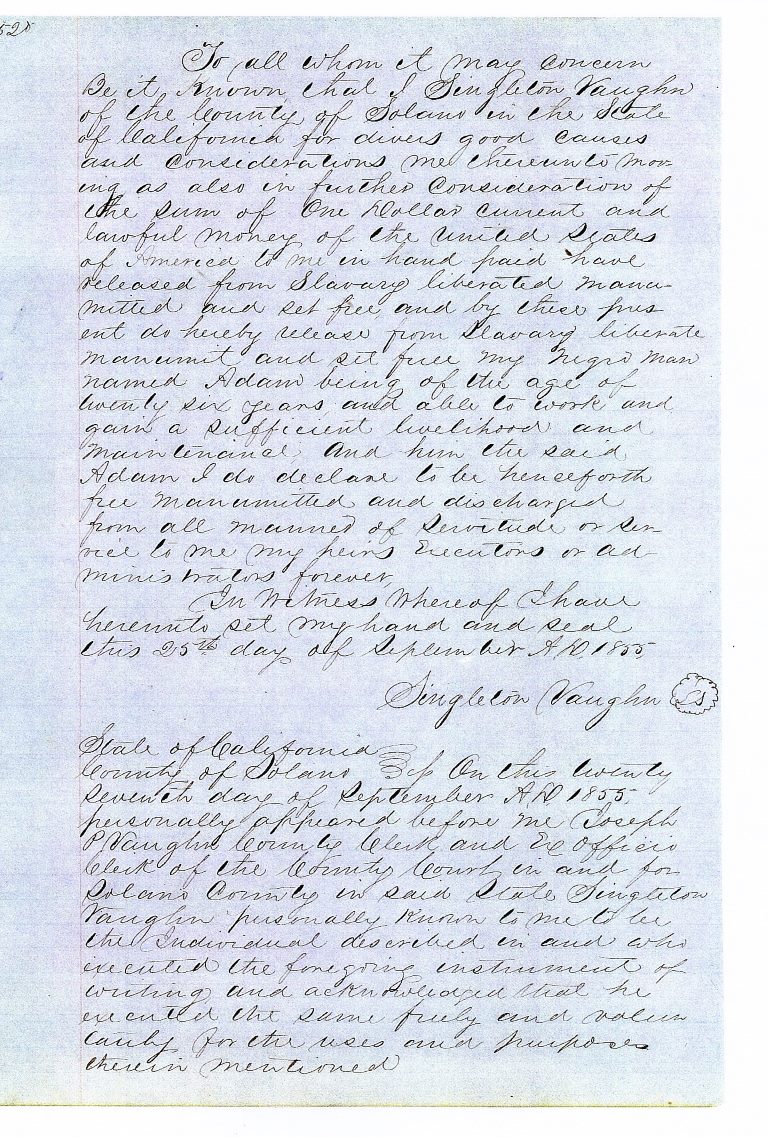 To all whom it may concern
Be it Known that I Singleton Vaughn
of the County of Solano in the State
of California for divers good causes
and considerations me thereunto mov-
ing as also in further Consideration of
the sum of One Dollar current and
lawful money of the united States
of America to me in hand paid have
released from Slavary liberated manu-
mitted and set free and by these pres
ent do hereby release from Slavary liberate
manumit and set free my Negro Man
named Adam being of the age of
twenty six years, and able to work and
gain a sufficient livelihood and
maintenance, And him the said
Adam I do declare to be henseforth
free Manumitted and discharged
from all manner of servitude or ser-
vice to me my heirs Executors or ad-
ministrators forever
In Witness Whereof I have
hereunto set my hand and seal
this 25th day of September A.D. 1855,
Singleton Vaughn LS
State of California
County of Solano ss On this twenty
seventh day of September A D 1855,
personally appeared before me Joseph
P Vaughn County Clerk and Ex Officio
Clerk of the County Court in and for
Solano County in said State Singleton
Vaughn personally Known to me to be
the Individual described in and who
executed the foregoing instrument of
writing and acknowledged that he
executed the same freely and volun
tarily for the uses and purposes
therein mentioned